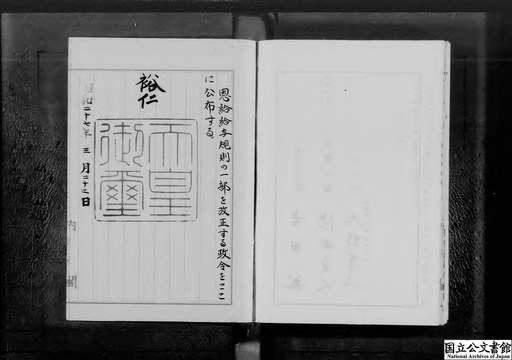 恩給給与規則の一部を改正する政令をここ
に公布する。
裕仁
天皇
御璽
昭和二十七年三月二十二日
内閣
国立公文書館
National Archives of Japan